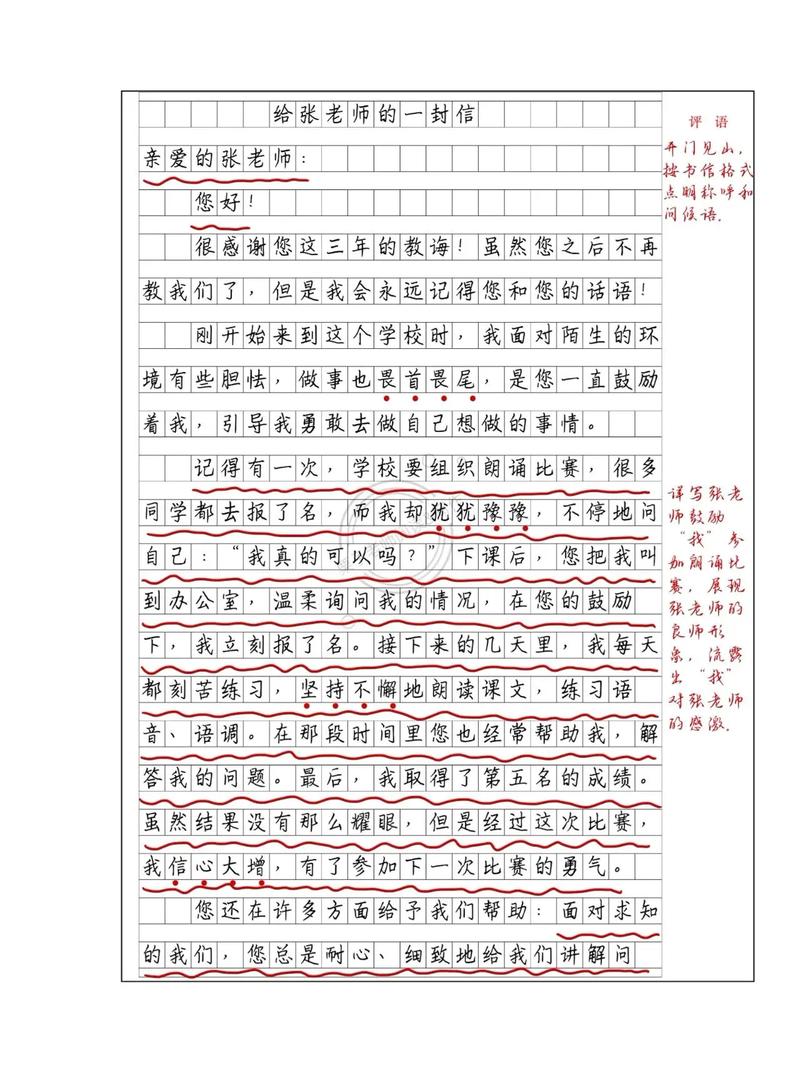 给张老师的一封信
亲爱的张老师：
您好！
很感谢您这三年的教诲！虽然您之后不再
教我们了，但是我会永远记得您和您的话语！
刚开始来到这个学校时，我面对陌生的环
境有些胆怯，做事也畏首畏尾，是您一直鼓励
着我，引导我勇敢去做自己想做的事情。
记得有一次，学校要组织朗诵比赛，很多
同学都去报了名，而我却犹犹豫豫，不停地问
自己：“我真的可以吗？”下课后，您把我叫
到办公室，温柔询问我的情况，在您的鼓励
下，我立刻报了名。接下来的几天里，我每天
都刻苦练习，坚持不懈地朗读课文，练习语
音、语调。在那段时间里您也经常帮助我，解
答我的问题。最后，我取得了第五名的成绩。
虽然结果没有那么耀眼，但是经过这次比赛，
我信心大增，有了参加下一次比赛的勇气。
您还在许多方面给予我们帮助：面对求知
的我们，您总是耐心、细致地给我们讲解问
评 语
开门见山，
按书信格式
点明称呼和
问候语.
详写张老
师鼓励
“我”参
加朗诵比
赛，展现
张老师的
良师形
象，流露
出“我”
对张老师
的感激.